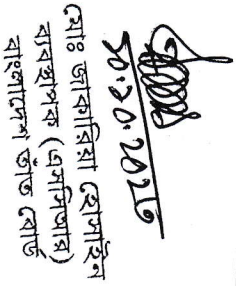 ৩০.১০.২০২৫
মোঃ জাকারিয়া হোসাইন
ব্যবস্থাপক
বাংলাদেশ তাঁত বোর্ড